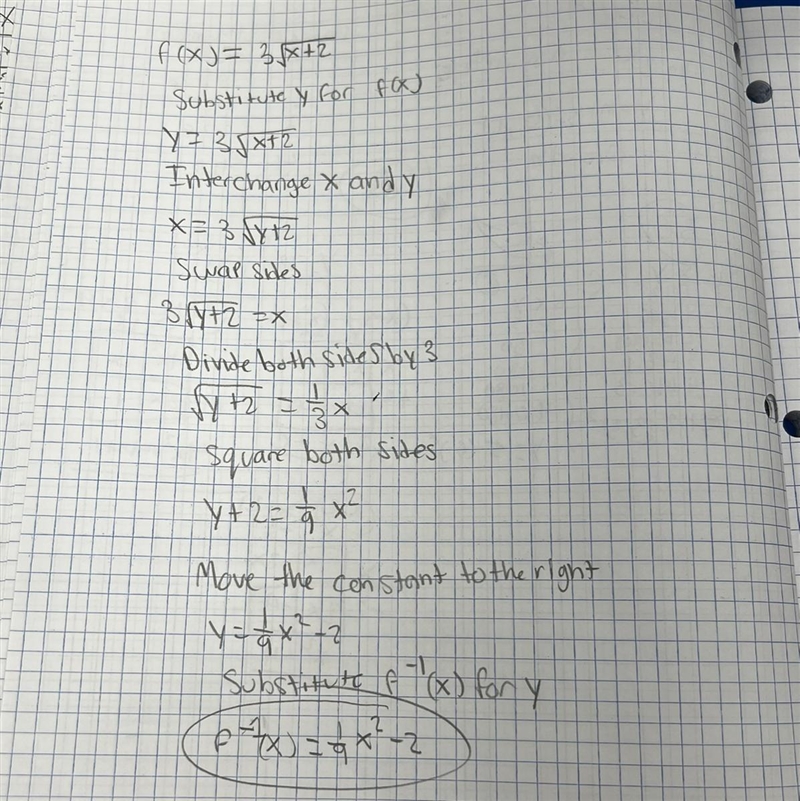 f(x) = 3√x+2
Substitute y for f(x)
y = 3√x+2
Interchange x and y
x = 3√y+2
Swap sides
3√y+2 = x
Divide both sides by 3
√y+2 = 1/3 x
Square both sides
y+2 = 1/9 x²
Move the constant to the right
y = 1/9 x² - 2
Substitute f⁻¹(x) for y
f⁻¹(x) = 1/9 x² - 2